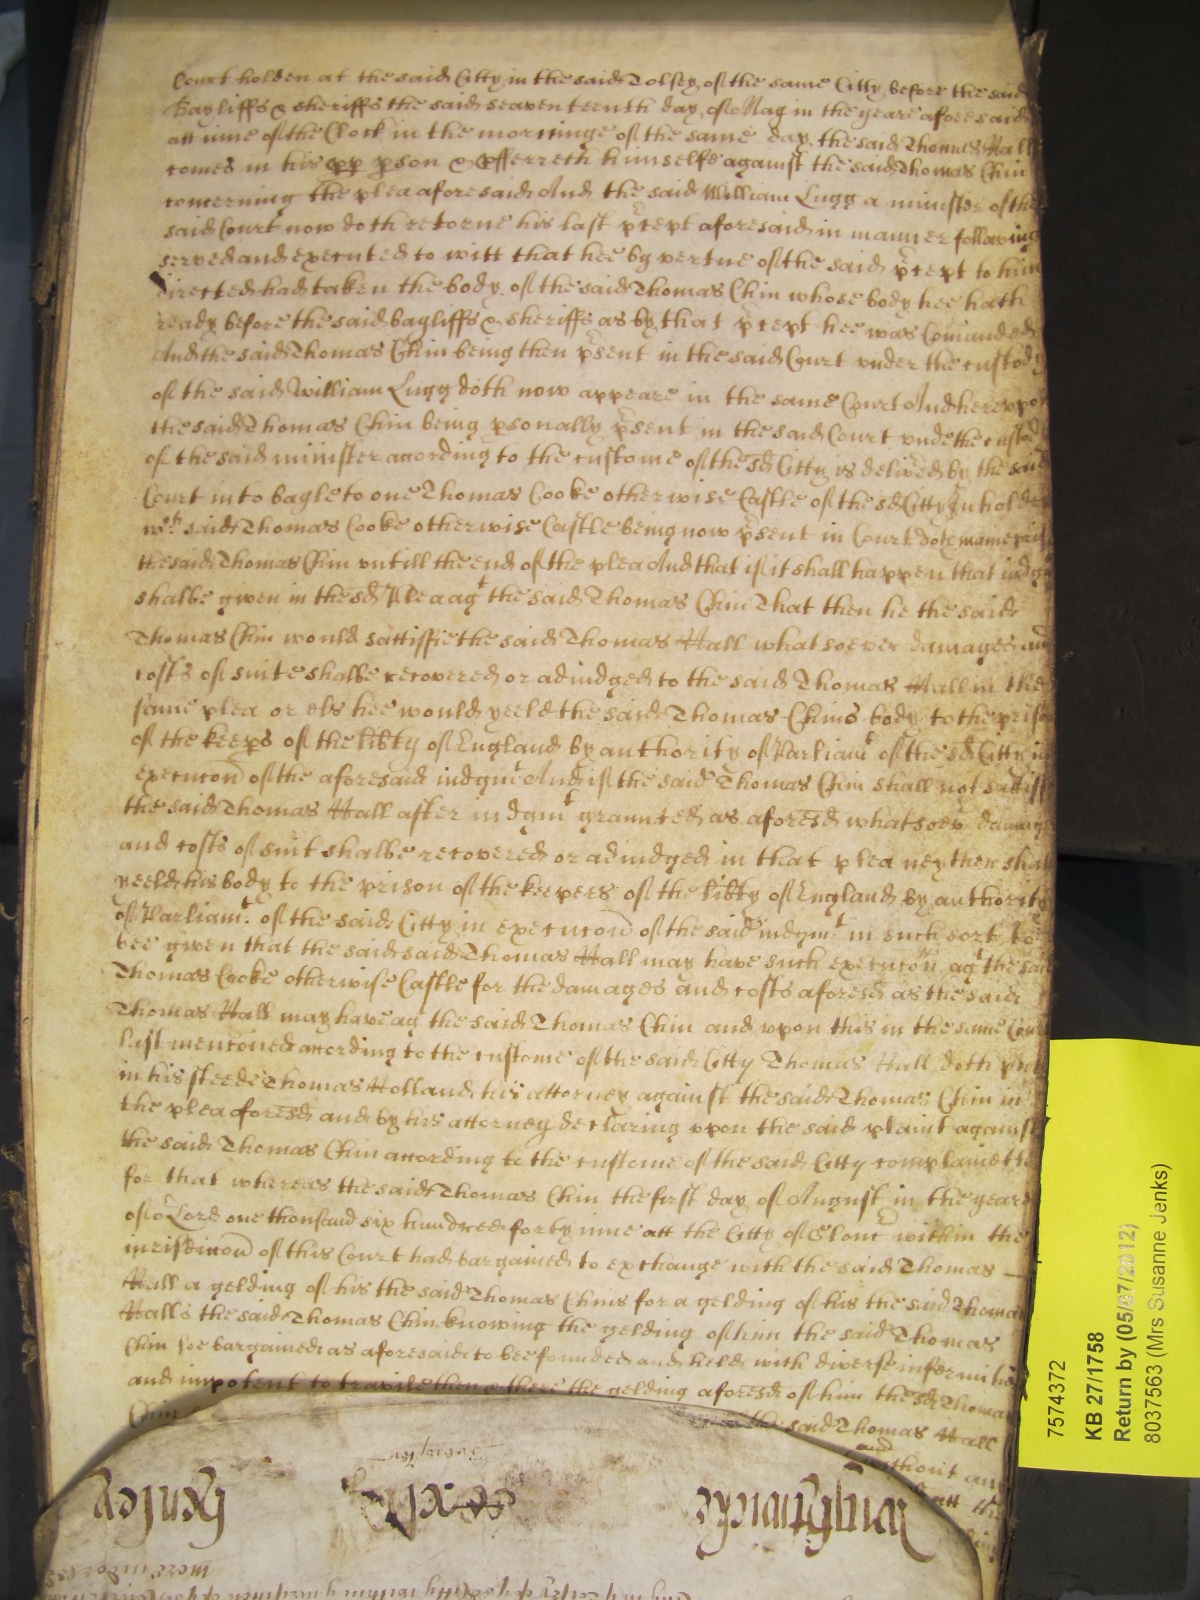 Court holden at the said Citty in the said Tolsey of the same Citty before the said
Bayliffs & sheriffs the said seaventeenth day of May in the yeare aforesaid
att nine of the Clock in the morninge of the same day the said Thomas Hall
comes in his pson & offerreth himselfe against the said Thomas Chin
concerning the plea aforesaid And the said William Lugg a minister of the
said Court now doth retorne his last pcept aforesaid in manner following
served and executed to witt that hee by vertue of the said pcept to him
directed had taken the body of the said Thomas Chin whose body hee hath
ready before the said bayliffs & sheriffs as by that pcept hee was Comanded
And the said Thomas Chin being then psent in the said Court under the custody
of the said William Lugg doth now appeare in the same Court And hereupon
the said Thomas Chin being psonally psent in the said Court unde the custod
of the said minister according to the custome of the sd Citty is delived by the said
Court into bayle to one Thomas Cooke otherwise Castle of the sd Citty Inholder
wch said Thomas Cooke otherwise Castle being now psent in Court doth mainepris
the said Thomas Chin untill the end of the plea And that if it shall happen that indgm
shalbe given in the sd Plea agt the said Thomas Chin That then he the said
Thomas Chin would sattisfie the said Thomas Hall whatsoever damages and
costs of suite shalbe recovered or adiudged to the said Thomas Hall in the
same plea or els hee would yeeld the said Thomas Chins body to the prison
of the keeps of the libty of England by authority of Parliamt of the sd Citty in
execucon of the aforesaid iudgmt And if the said Thomas Chin shall not sattisfi
the said Thomas Hall after iudgmt graunted as aforesd whatsoev damage
and costs of suit shalbe recovered or adiudged in that plea neyther shall
yeeld his body to the prison of the keepers of the libty of England by authority
of Parliamt of the said Citty in execucon of the said iudgmt in such sort to
bee given that the said said Thomas Hall may have such execucon agt the said
Thomas Cooke otherwise Castle for the damages and costs aforesd as the said
Thomas Hall may have ag the said Thomas Chin and upon this in the same Court
last mencioned according to the custome of the said Citty Thomas Hall doth put
in his steede Thomas Holland his attorney against the said Thomas Chin in
the plea aforesd and by his attorney declaring upon the said plaint against
the said Thomas Chin according to the custome of the said Citty complaineth
for that whereas the said Thomas Chin the first day of August in the yeare
of or Lord one thousand six hundred forty nine att the Citty of Glouc within the
iurisdiccon of this Court had bargained to exchange with the said Thomas
Hall a gelding of his the said Thomas Chins for a gelding of his the said Thomas
Halls the said Thomas Chin knowing the gelding of him the said Thomas
Chin soe bargained as aforesaid to bee founded and held with diverse infermities
and impotent to travile then & there the gelding aforesd of him the sd Thomas
Chin the said Thomas Hall
and without
att the
7574372
KB 27/1758
Return by (05/07/2012)
8037563 (Mrs Susanne Jenks)